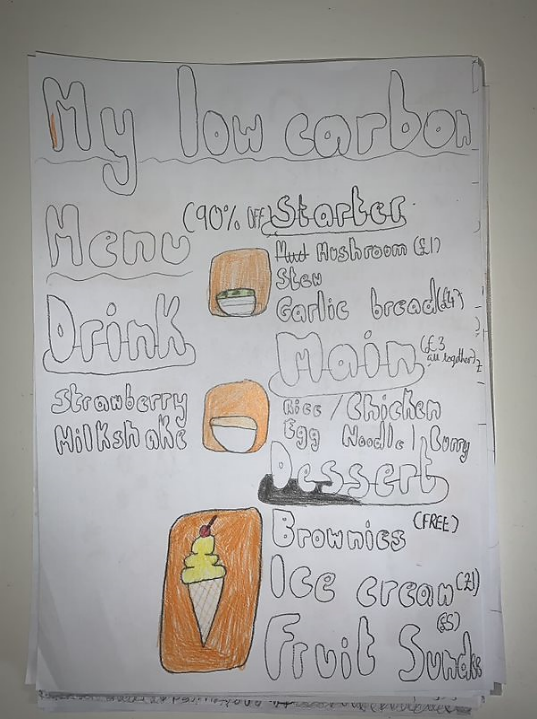 My low carbon
Menu
(90% OFF)
Starter
Mushroom (£1)
Stew
Garlic bread
Drink
Strawberry
Milkshake
Main
(£3
all together)
Rice / Chicken
Egg Noodle / Curry
Dessert
Brownies (FREE)
Ice cream (£1)
Fruit (£5)